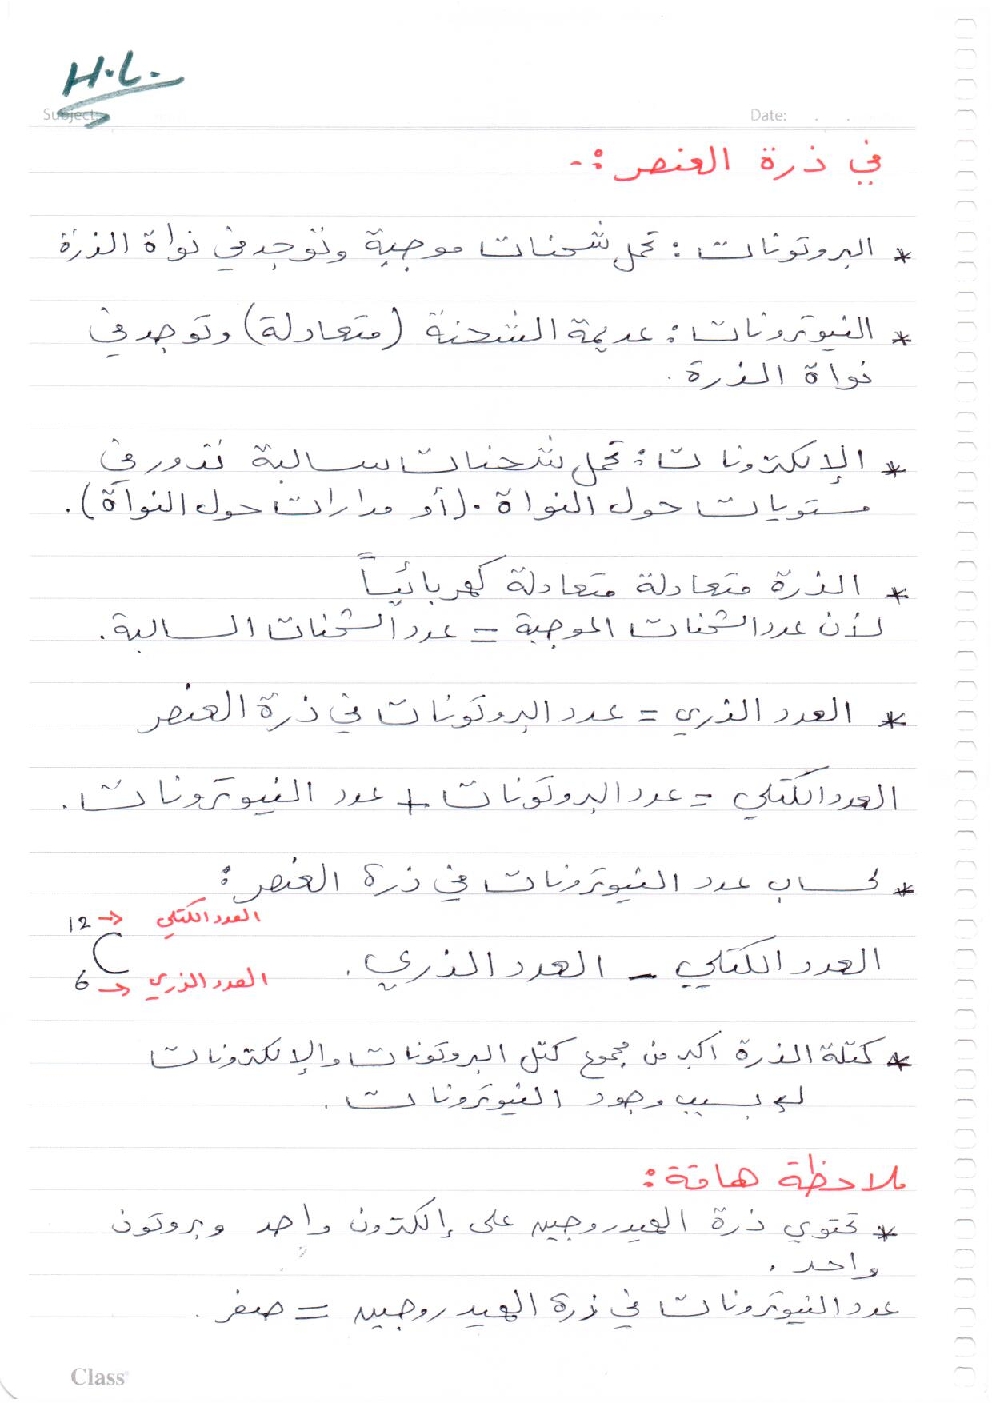 H.L.
Subject:
Date: . .
في ذرة العنصر :-
* البروتونات : تحمل شحنات موجبة وتوجد في نواة الذرة
* النيوترونات : عديمة الشحنة (متعادلة) وتوجد في
نواة الذرة .
* الإلكترونات : تحمل شحنات سالبة تدور في
مستويات حول النواة . (أو مدارات حول النواة) .
* الذرة متعادلة متعادلة كهربائياً
لأن عدد الشحنات الموجبة = عدد الشحنات السالبة .
* العدد الذري = عدد البروتونات في ذرة العنصر
العدد الكتلي = عدد البروتونات + عدد النيوترونات .
* لحساب عدد النيوترونات في ذرة العنصر :
12 ← العدد الكتلي
العدد الكتلي - العدد الذري . C
6 ← العدد الذري
* كتلة الذرة أكبر من مجموع كتل البروتونات والإلكترونات
بسبب وجود النيوترونات .
ملاحظة هامة :
* تحتوي ذرة الهيدروجين على إلكترون واحد وبروتون
واحد .
عدد النيوترونات في ذرة الهيدروجين = صفر .
Class